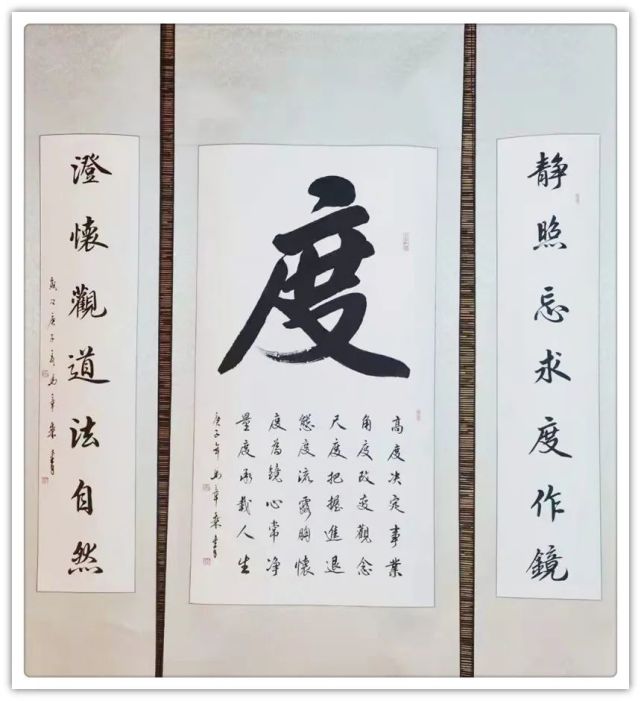 静照忘求度作鏡
度
高度决定事業
角度改变觀念
尺度把握進退
態度流露胸懷
度為鏡心常净
量度承載人生
庚子年
澄懷觀道法自然
歲次庚子